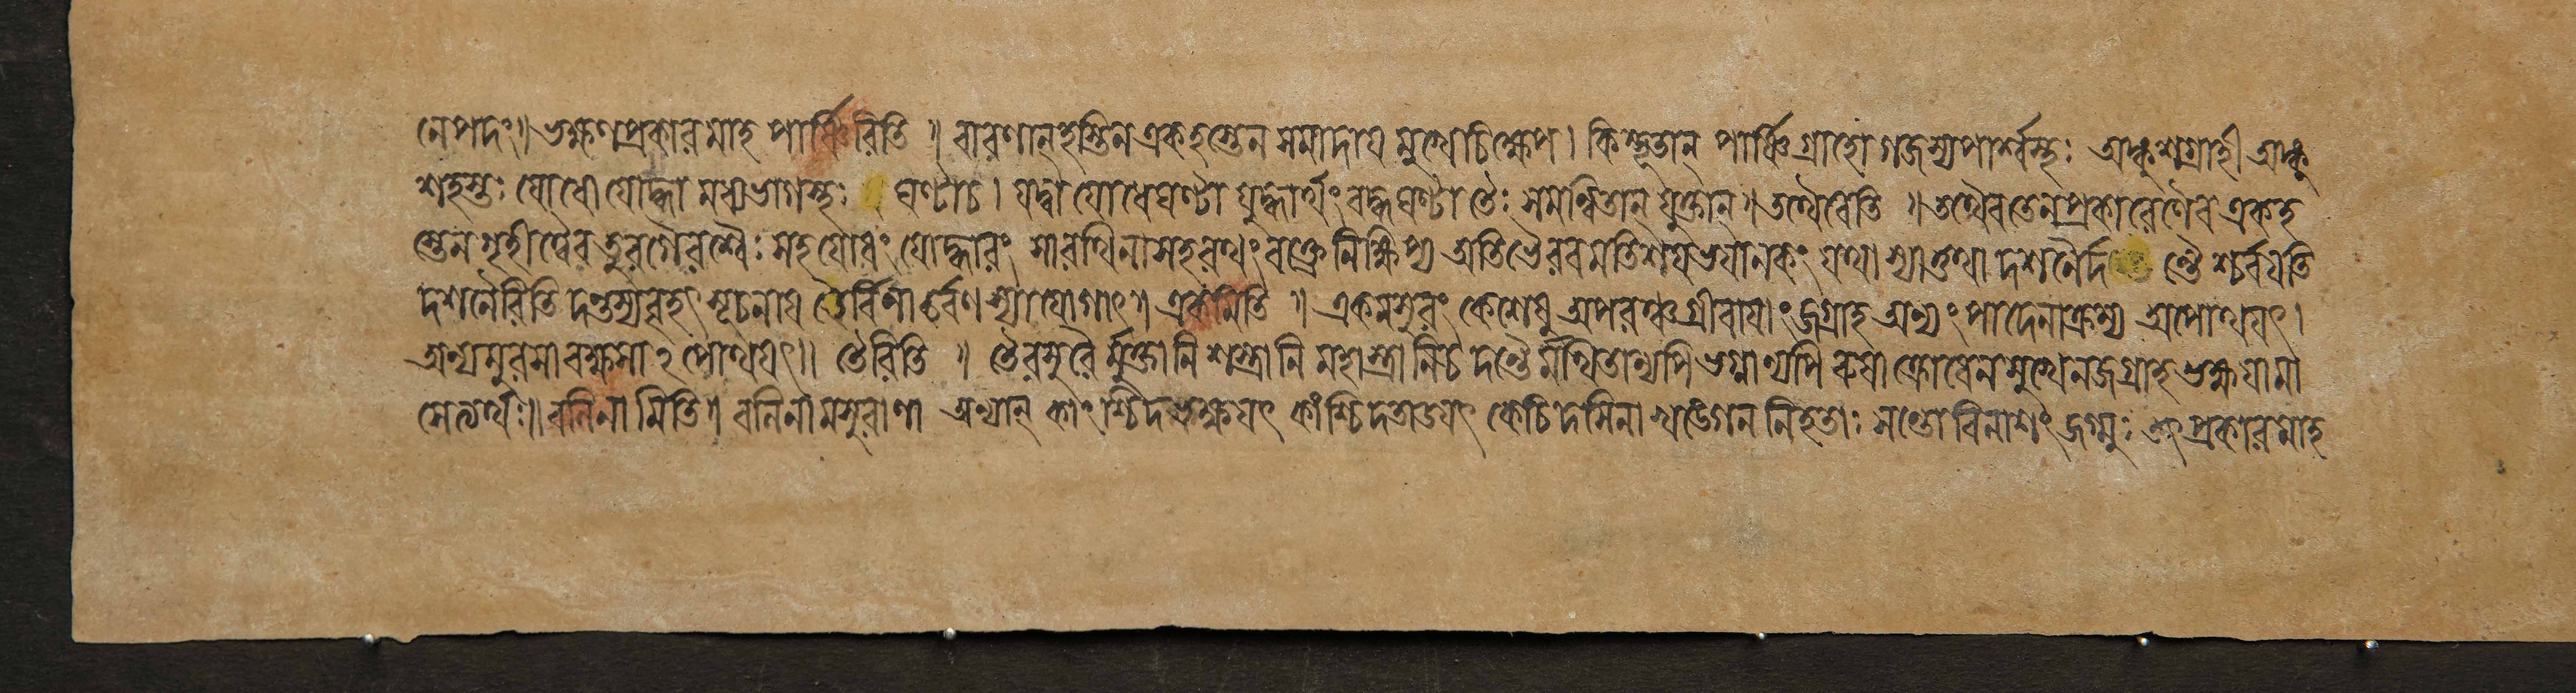 নেপদং॥ ভক্ষণপ্রকারমাহ পার্ষ্ণিরিতি ॥ বারণান্ হস্তিন একহস্তেন সমাদায় মুখেচিক্ষেপ। কিম্ভূতান্ পার্ষ্ণিগ্রাহো গজস্যপার্শ্বস্থঃ অঙ্কুশগ্রাহী অঙ্কু
শহস্তঃ যোধো যোদ্ধা মধ্যভাগস্থঃ ঘণ্টাচ। যদ্বা যোধেঘণ্টা যুদ্ধার্থং বদ্ধঘণ্টা তৈঃ সমন্বিতান্ যুক্তান্॥ তথৈবেতি ॥ তথৈবতেনপ্রকারেণৈব একহ
স্তেন গৃহীত্বৈব তুরগৈরশ্বৈঃ সহ যোধং যোদ্ধারং সারথিনাসহরথং বক্ত্রেনিক্ষিপ্য অতিভৈরবমতিশয়ভয়ানকং যথা স্যাত্তথা দশনৈর্দ ন্তৈ শ্চর্বয়তি
দশনৈরিতি দন্তস্যবৃহৎ সূচনায় তৈর্বিনা চর্বণ স্যাযোগাৎ॥ একমিতি ॥ একমসুরং কেশেষু অপরঞ্চগ্রীবায়াং জগ্রাহ অন্যং পাদেনাক্রম্য অপোথয়ৎ।
অন্যমসুরমা বক্ষসা২পোথয়ৎ॥ তৈরিতি ॥ তৈরসুরৈ র্মুক্তানি শস্ত্রানি মহাস্ত্রানিচ দন্তৈ র্মথিতান্যপি ভগ্নান্যপি রুষা ক্রোধেনমুখেনজগ্রাহ ভক্ষয়ামা
সেত্যর্থঃ॥ বলিনা মিতি॥ বলিনামসুরাণা অন্যান্ কাংশ্চিদভক্ষয়ৎ কাংশ্চিদতাডয়ৎ কেচিদসিনা খড্গেন নিহতাঃ সন্তো বিনাশং জগ্মুঃ তৎ প্রকারমাহ